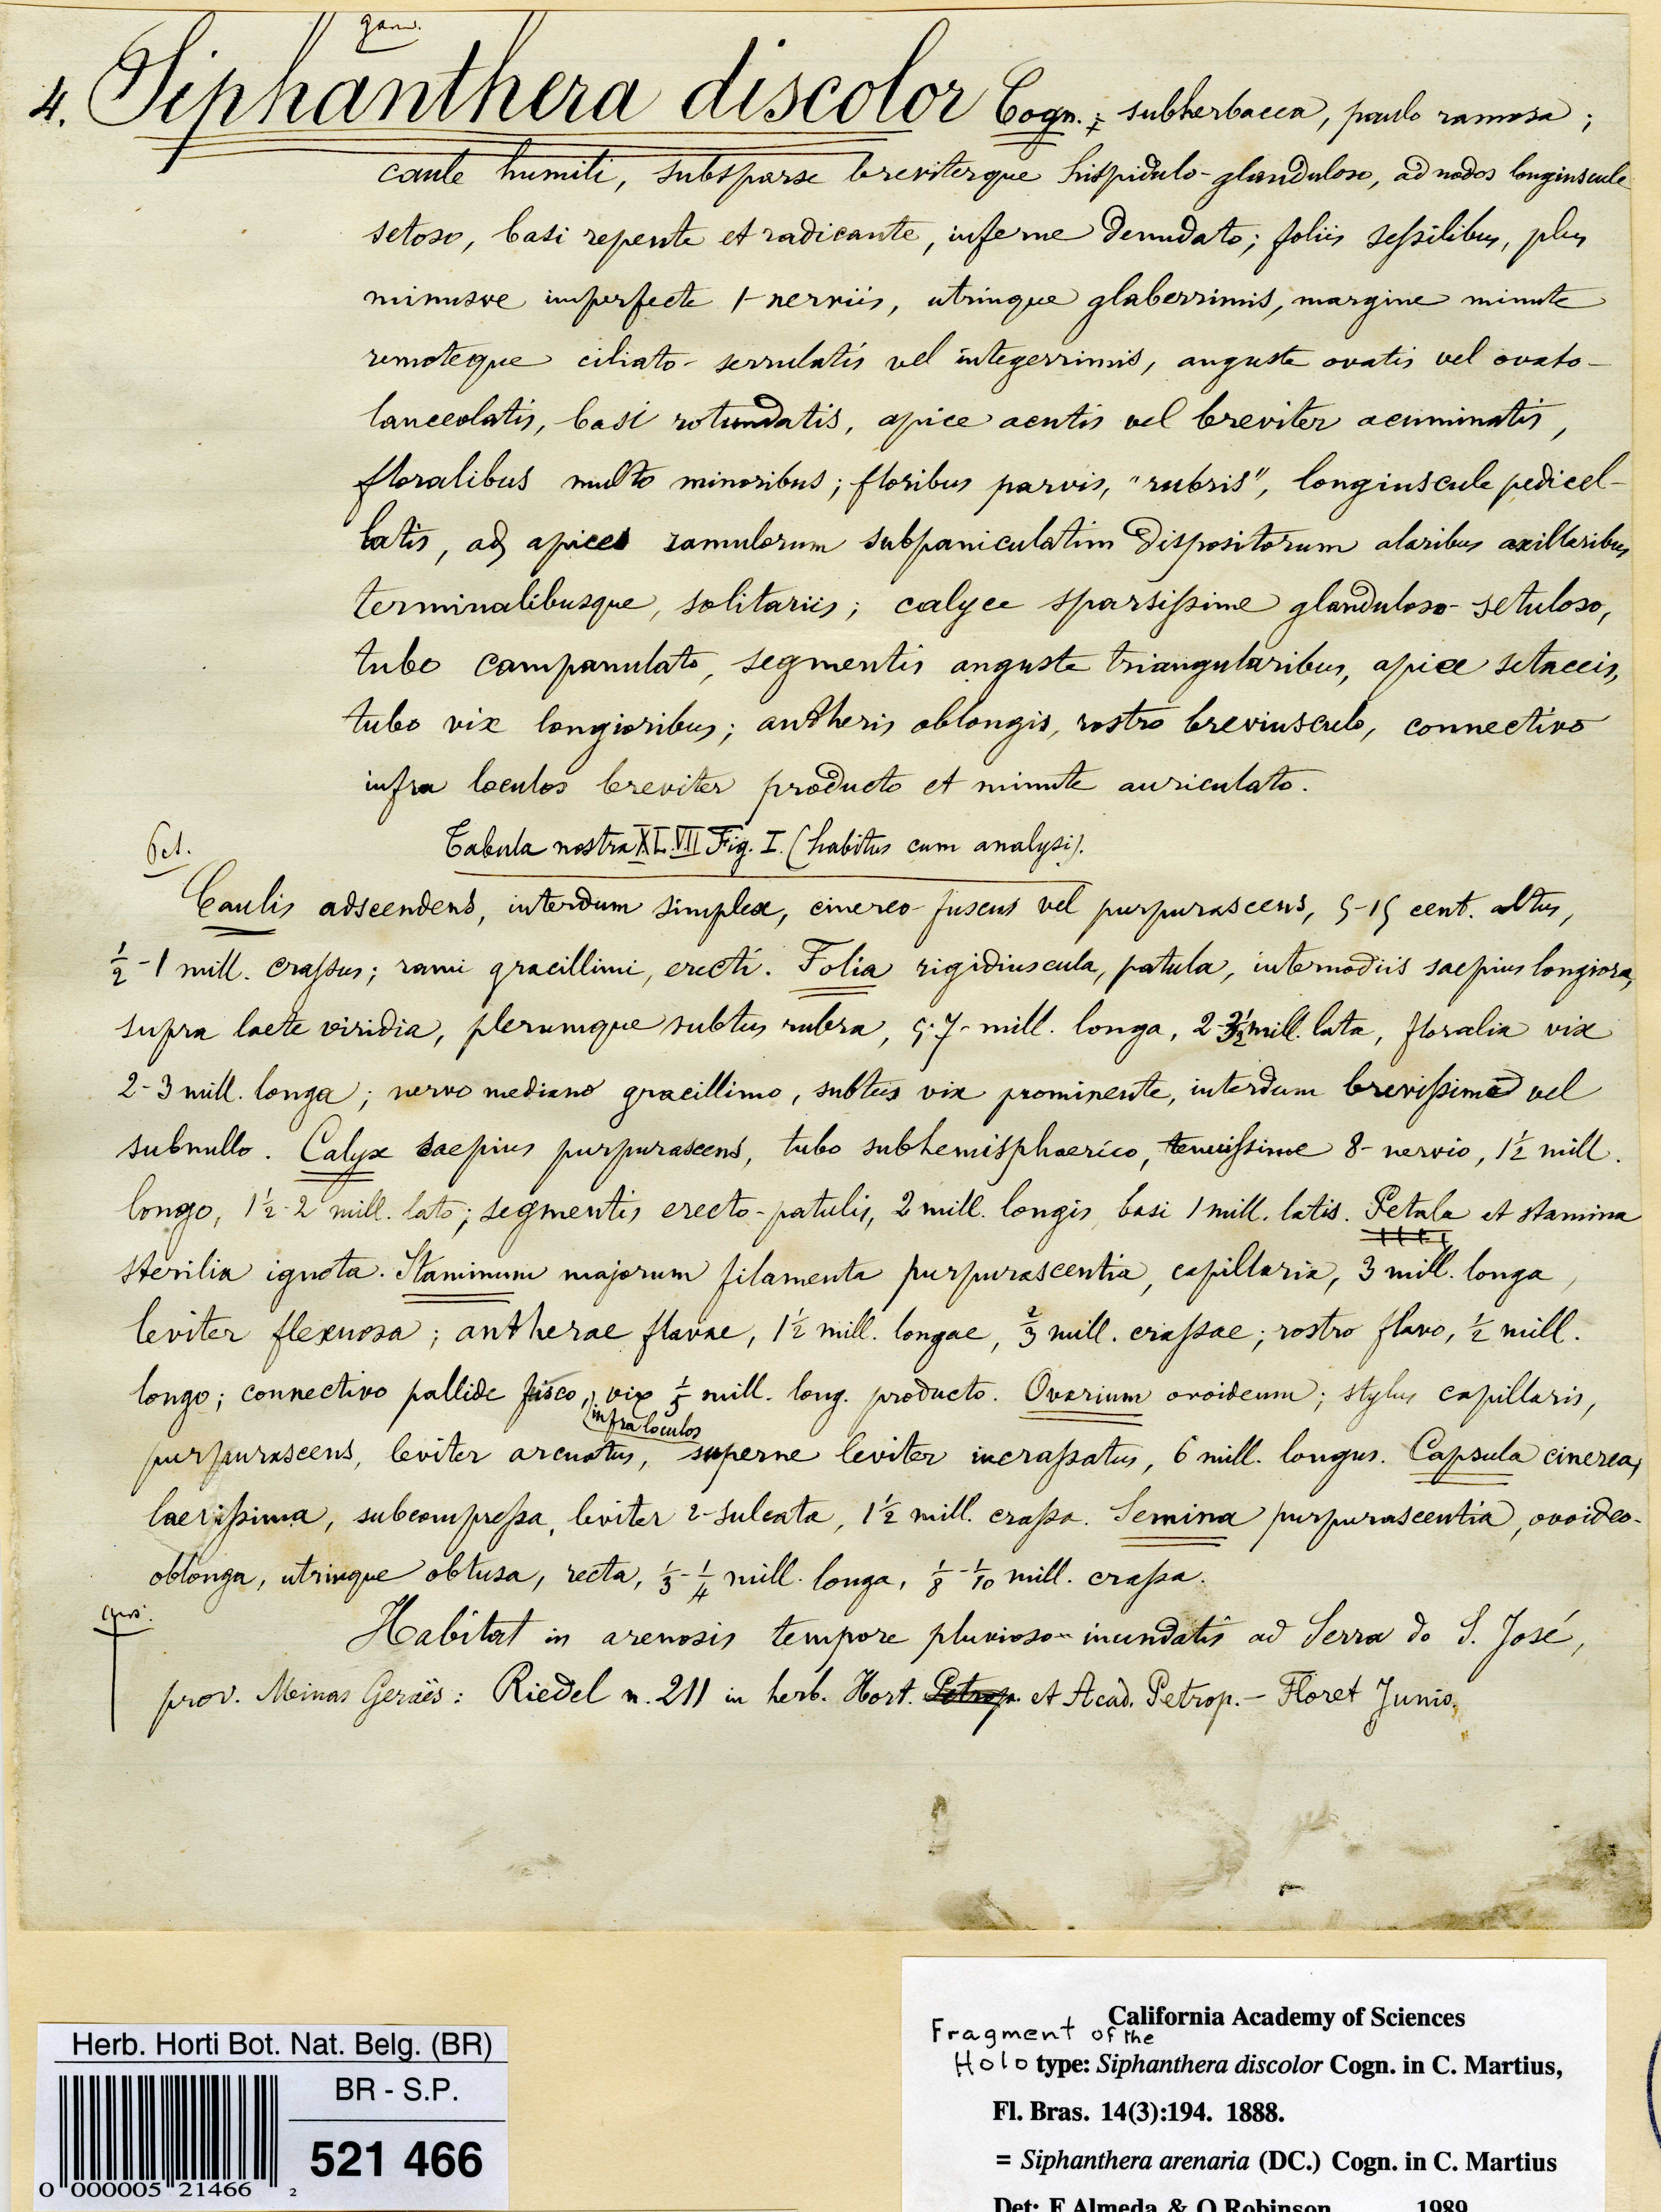 4. Siphanthera discolor Cogn.; subherbacea, paulo ramosa;
caule humili, subsparse breviterque hispidulo-glanduloso, ad nodos longiuscule
setoso, basi repente et radicante, inferne denudato; foliis seſsilibus, plus
minusve imperfecte 1-nerviis, utrinque glaberrimis, margine minute
remoteque ciliato-serrulatis vel integerrimis, anguste ovatis vel ovato-
lanceolatis, basi rotundatis, apice acutis vel breviter acuminatis,
floralibus multo minoribus; floribus parvis, "rubris", longiuscule pedicel-
latis, ad apices ramulorum subpaniculatim dispositorum alaribus axillaribus
terminalibusque, solitariis; calyce sparsiſsime glanduloso-setuloso,
tubo campanulato, segmentis anguste triangularibus, apice setaceis,
tubo vix longioribus; antheris oblongis, rostro breviusculo, connectivo
infra loculos breviter producto et minute auriculato.
Tabula nostra XLVII Fig. I. (habitus cum analysi).
Caulis adscendens, interdum simplex, cinereo-fuscus vel purpurascens, 5-15 cent. altus,
½-1 mill. craſsus; rami gracillimi, erecti. Folia rigidiuscula, patula, internodiis saepius longiora,
supra laete viridia, plerumque subtus rubra, 5-7-mill. longa, 2-3½ mill. lata, floralia vix
2-3 mill. longa; nervo mediano gracillimo, subtus vix prominente, interdum breviſsimo vel
subnullo. Calyx saepius purpurascens, tubo subhemisphaerico, tenuiſsime 8-nervio, 1½ mill.
longo, 1½-2 mill. lato; segmentis erecto-patulis, 2 mill. longis, basi 1 mill. latis. Petala et stamina
sterilia ignota. Staminum majorum filamenta purpurascentia, capillaria, 3 mill. longa,
leviter flexuosa; antherae flavae, 1½ mill. longae, ⅔ mill. craſsae; rostro flavo, ½ mill.
longo; connectivo pallide fusco, vix ⅕ mill. long. producto. Ovarium ovoideum; stylus capillaris,
infra loculos
purpurascens, leviter arcuatus, superne leviter incraſsatus, 6 mill. longus. Capsula cinerea,
laeviſsima, subcompreſsa, leviter 2-sulcata, 1½ mill. craſsa. Semina purpurascentia, ovoideo-
oblonga, utrinque obtusa, recta, ⅓-¼ mill. longa, ⅛-1/10 mill. craſsa.
Habitat in arenosis tempore pluvioso inundatis ad Serra do S. José,
prov. Meinas Geraës: Riedel n. 211 in herb. Hort. Petrop. et Acad. Petrop.- Floret Junio.
Herb. Horti Bot. Nat. Belg. (BR)
BR - S.P.
521 466
0 000005 21466 2
California Academy of Sciences
Fragment of the
Holo type: Siphanthera discolor Cogn. in C. Martius,
Fl. Bras. 14(3):194. 1888.
= Siphanthera arenaria (DC.) Cogn. in C. Martius
Det: F. Almeda & O. Robinson 1989